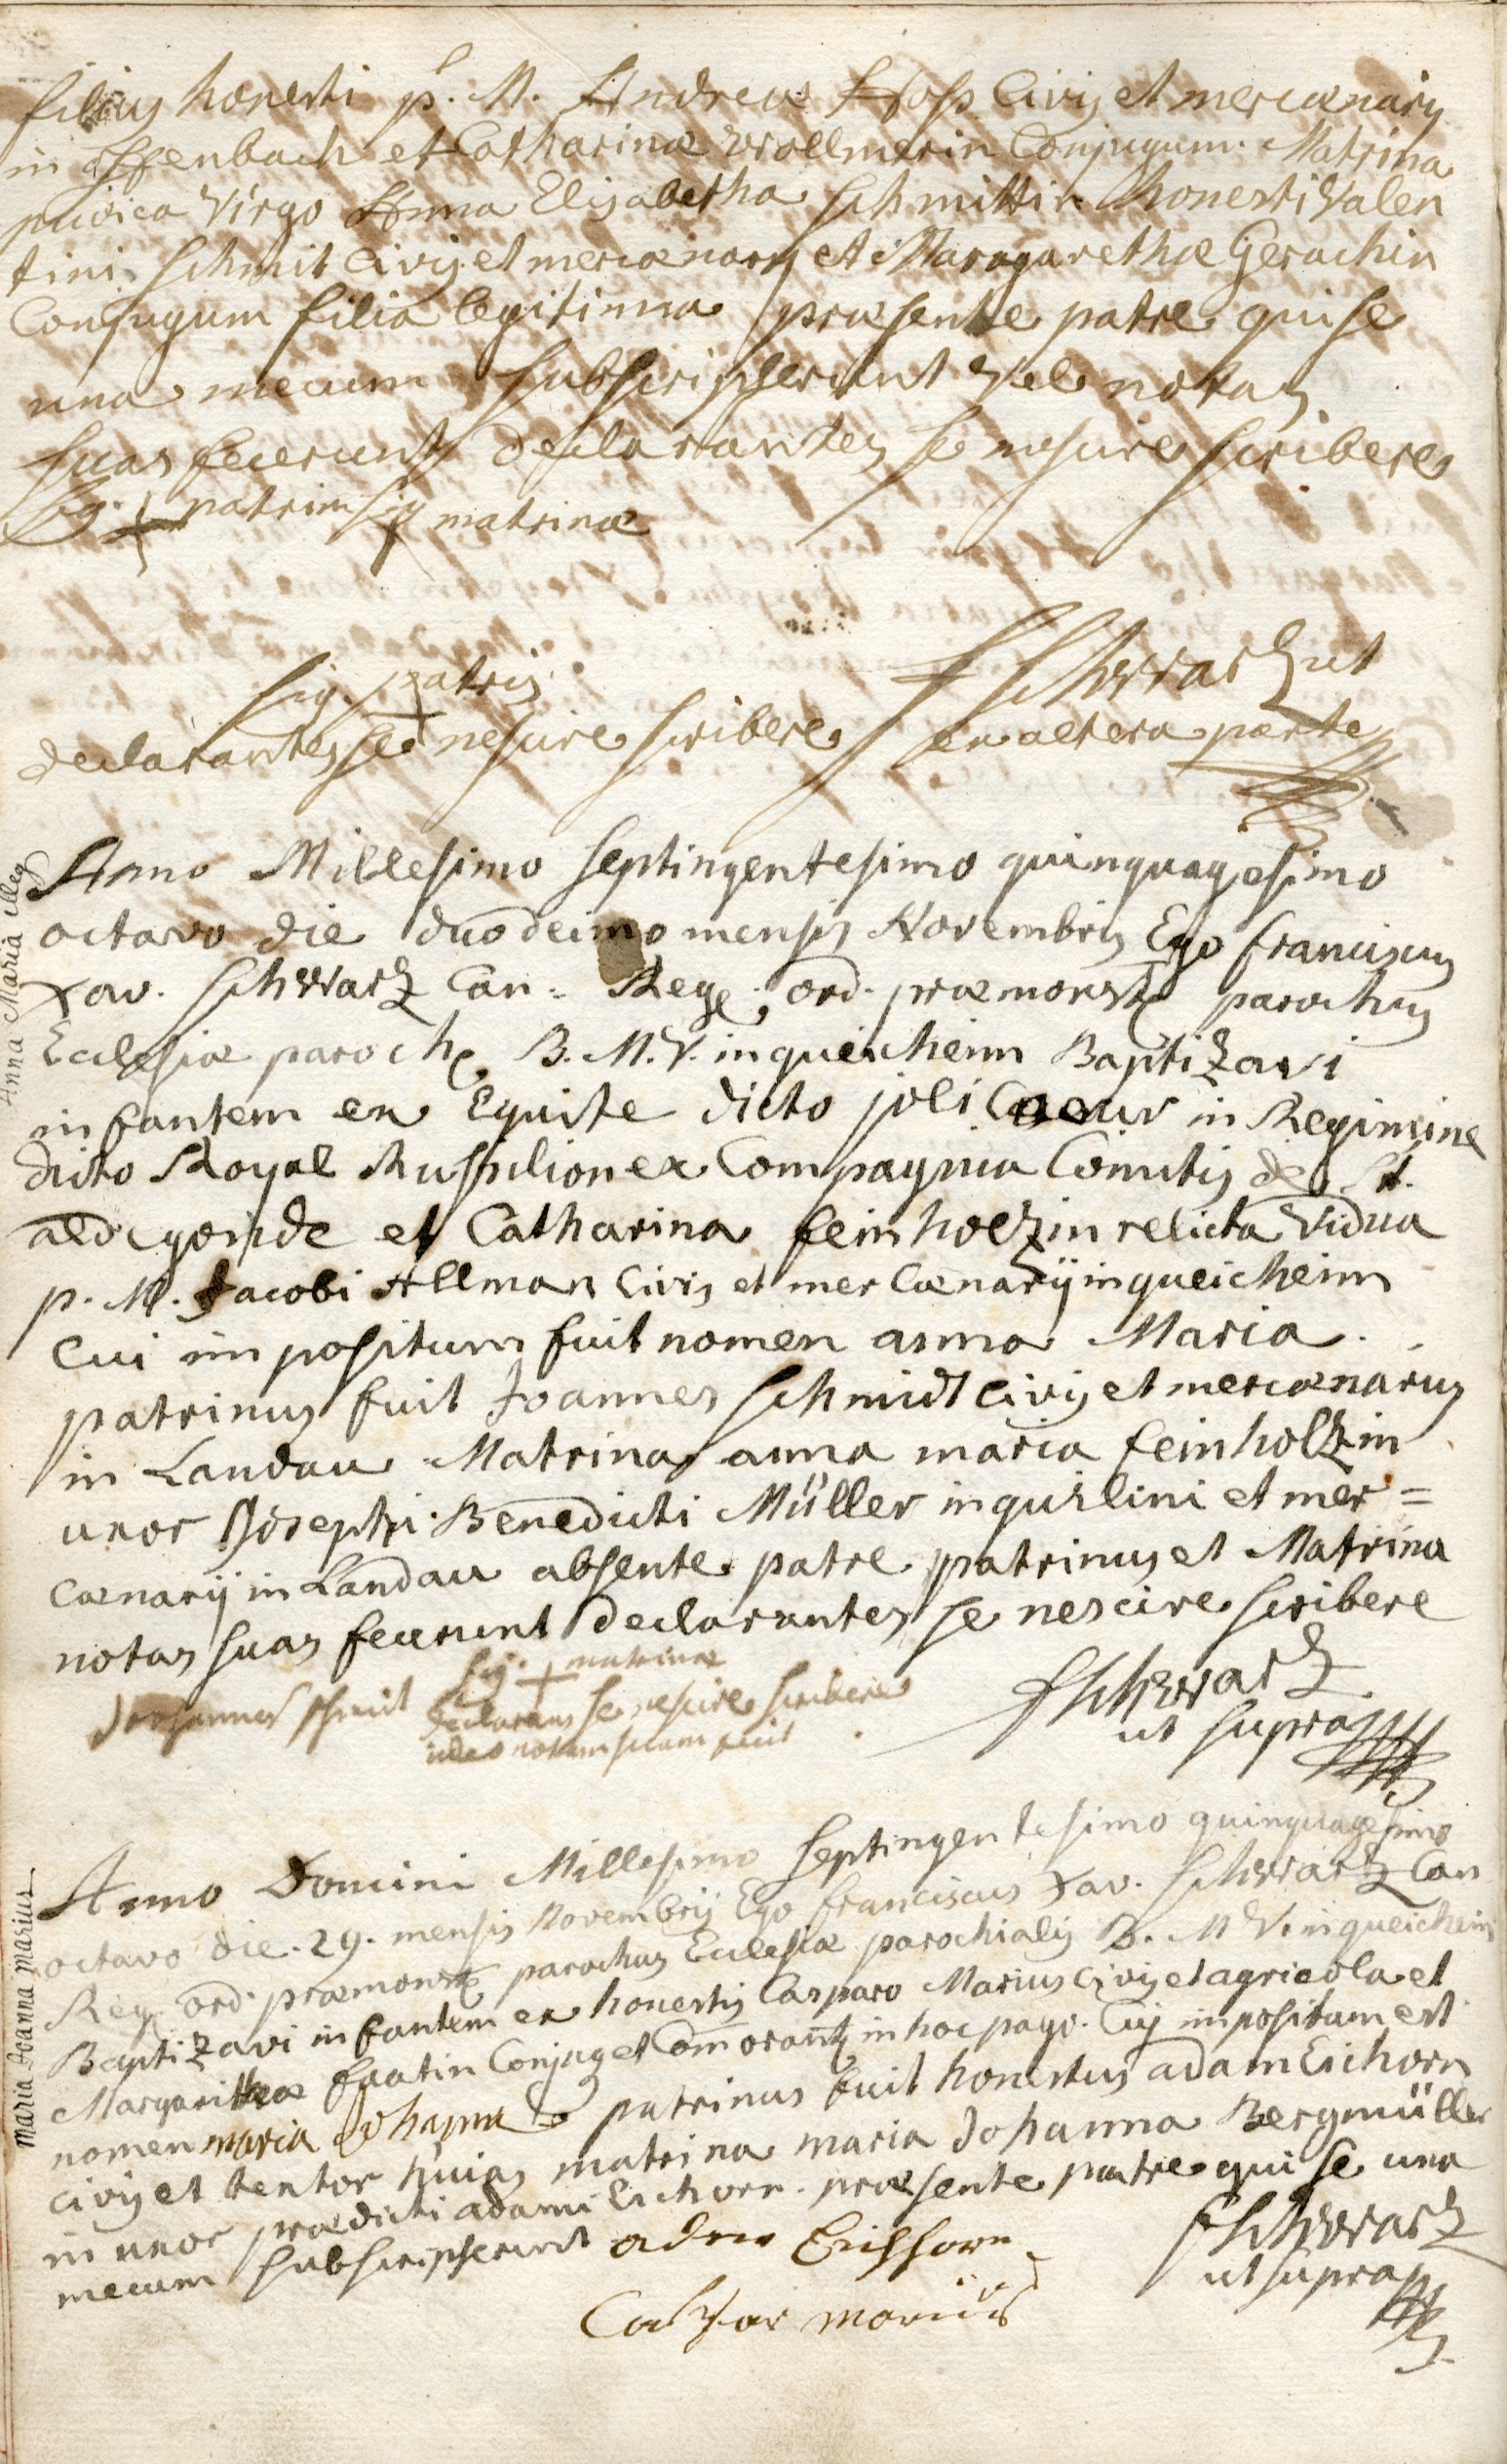 filius honesti p. M. Andreæ Hoss Civis et mercænarij
in Essenbach et Catharinæ Wollmerin Conjugum. Matrina
pudica Virgo Anna Elisabetha Schmittin honesti Valen
tini Schmit Civis et mercænarij et Maragarethæ Gerachin
Conjugum filia legitima præsente patre qui se
una mecum subscripserunt vel notas
suas fecerunt declarantes se nescire scribere
sig. + patrini sig + matrinæ
sig. + patris
declarantes se nescire scribere
FSchwartz ut
ex altera parte
Anna Maria illeg
Anno Millesimo Septingentesimo quinquagesimo
octavo die duodecimo mensis Novembris Ego franciscus
Xav. Schwartz Can= Reg. ord. præmonst parochus
Ecclesiæ paroch. B. M. V. in queicheim Baptizavi
infantem ex Equite dicto joli Coeur in Regimine
dicto Royal Russilion ex Compagnia Comitis de St.
aldegonde et Catharina feinholtzin relicta Vidua
p. M. Jacobi Allman Civis et mercænarij in queicheim
Cui impositum fuit nomen anna Maria.
patrinus fuit Joannes Schmidt Civis et mercænarius
in Landau Matrina anna maria feinholtzin
uxor Josephi Benedicti Müller inquilini et mer=
cænarij in Landau absente patre patrinus et Matrina
notas suas fecerunt declarantes se nescire scribere
Johannes Schmit
sig. + matrinæ
declarans se nescire scribere
ideo notam suam fecit
FSchwartz
ut supra
Maria Joanna Marius
Anno Domini Millesimo Septingentesimo quinquagesimo
octavo die. 29. mensis Novembris Ego franciscus Xav. Schwartz Can
Reg ord. præmonst parochus Ecclesiæ parochialis B. M V. in queicheim
Baptizavi infantem ex honestis Casparo Marius Civis et agricola et
Margarithæ fratin Conjug et Comorant in hoc pago. Cuj impositum est
nomen maria Johanna patrinus fuit honestus adam Eichorn
civis et textor hujas matrina maria Johanna Bergmüller
in uxor prædicti adami Eichorn. præsente patre qui se una
mecum subscripserunt adam Eichhorn
Caspar marius
FSchwartz
ut supra